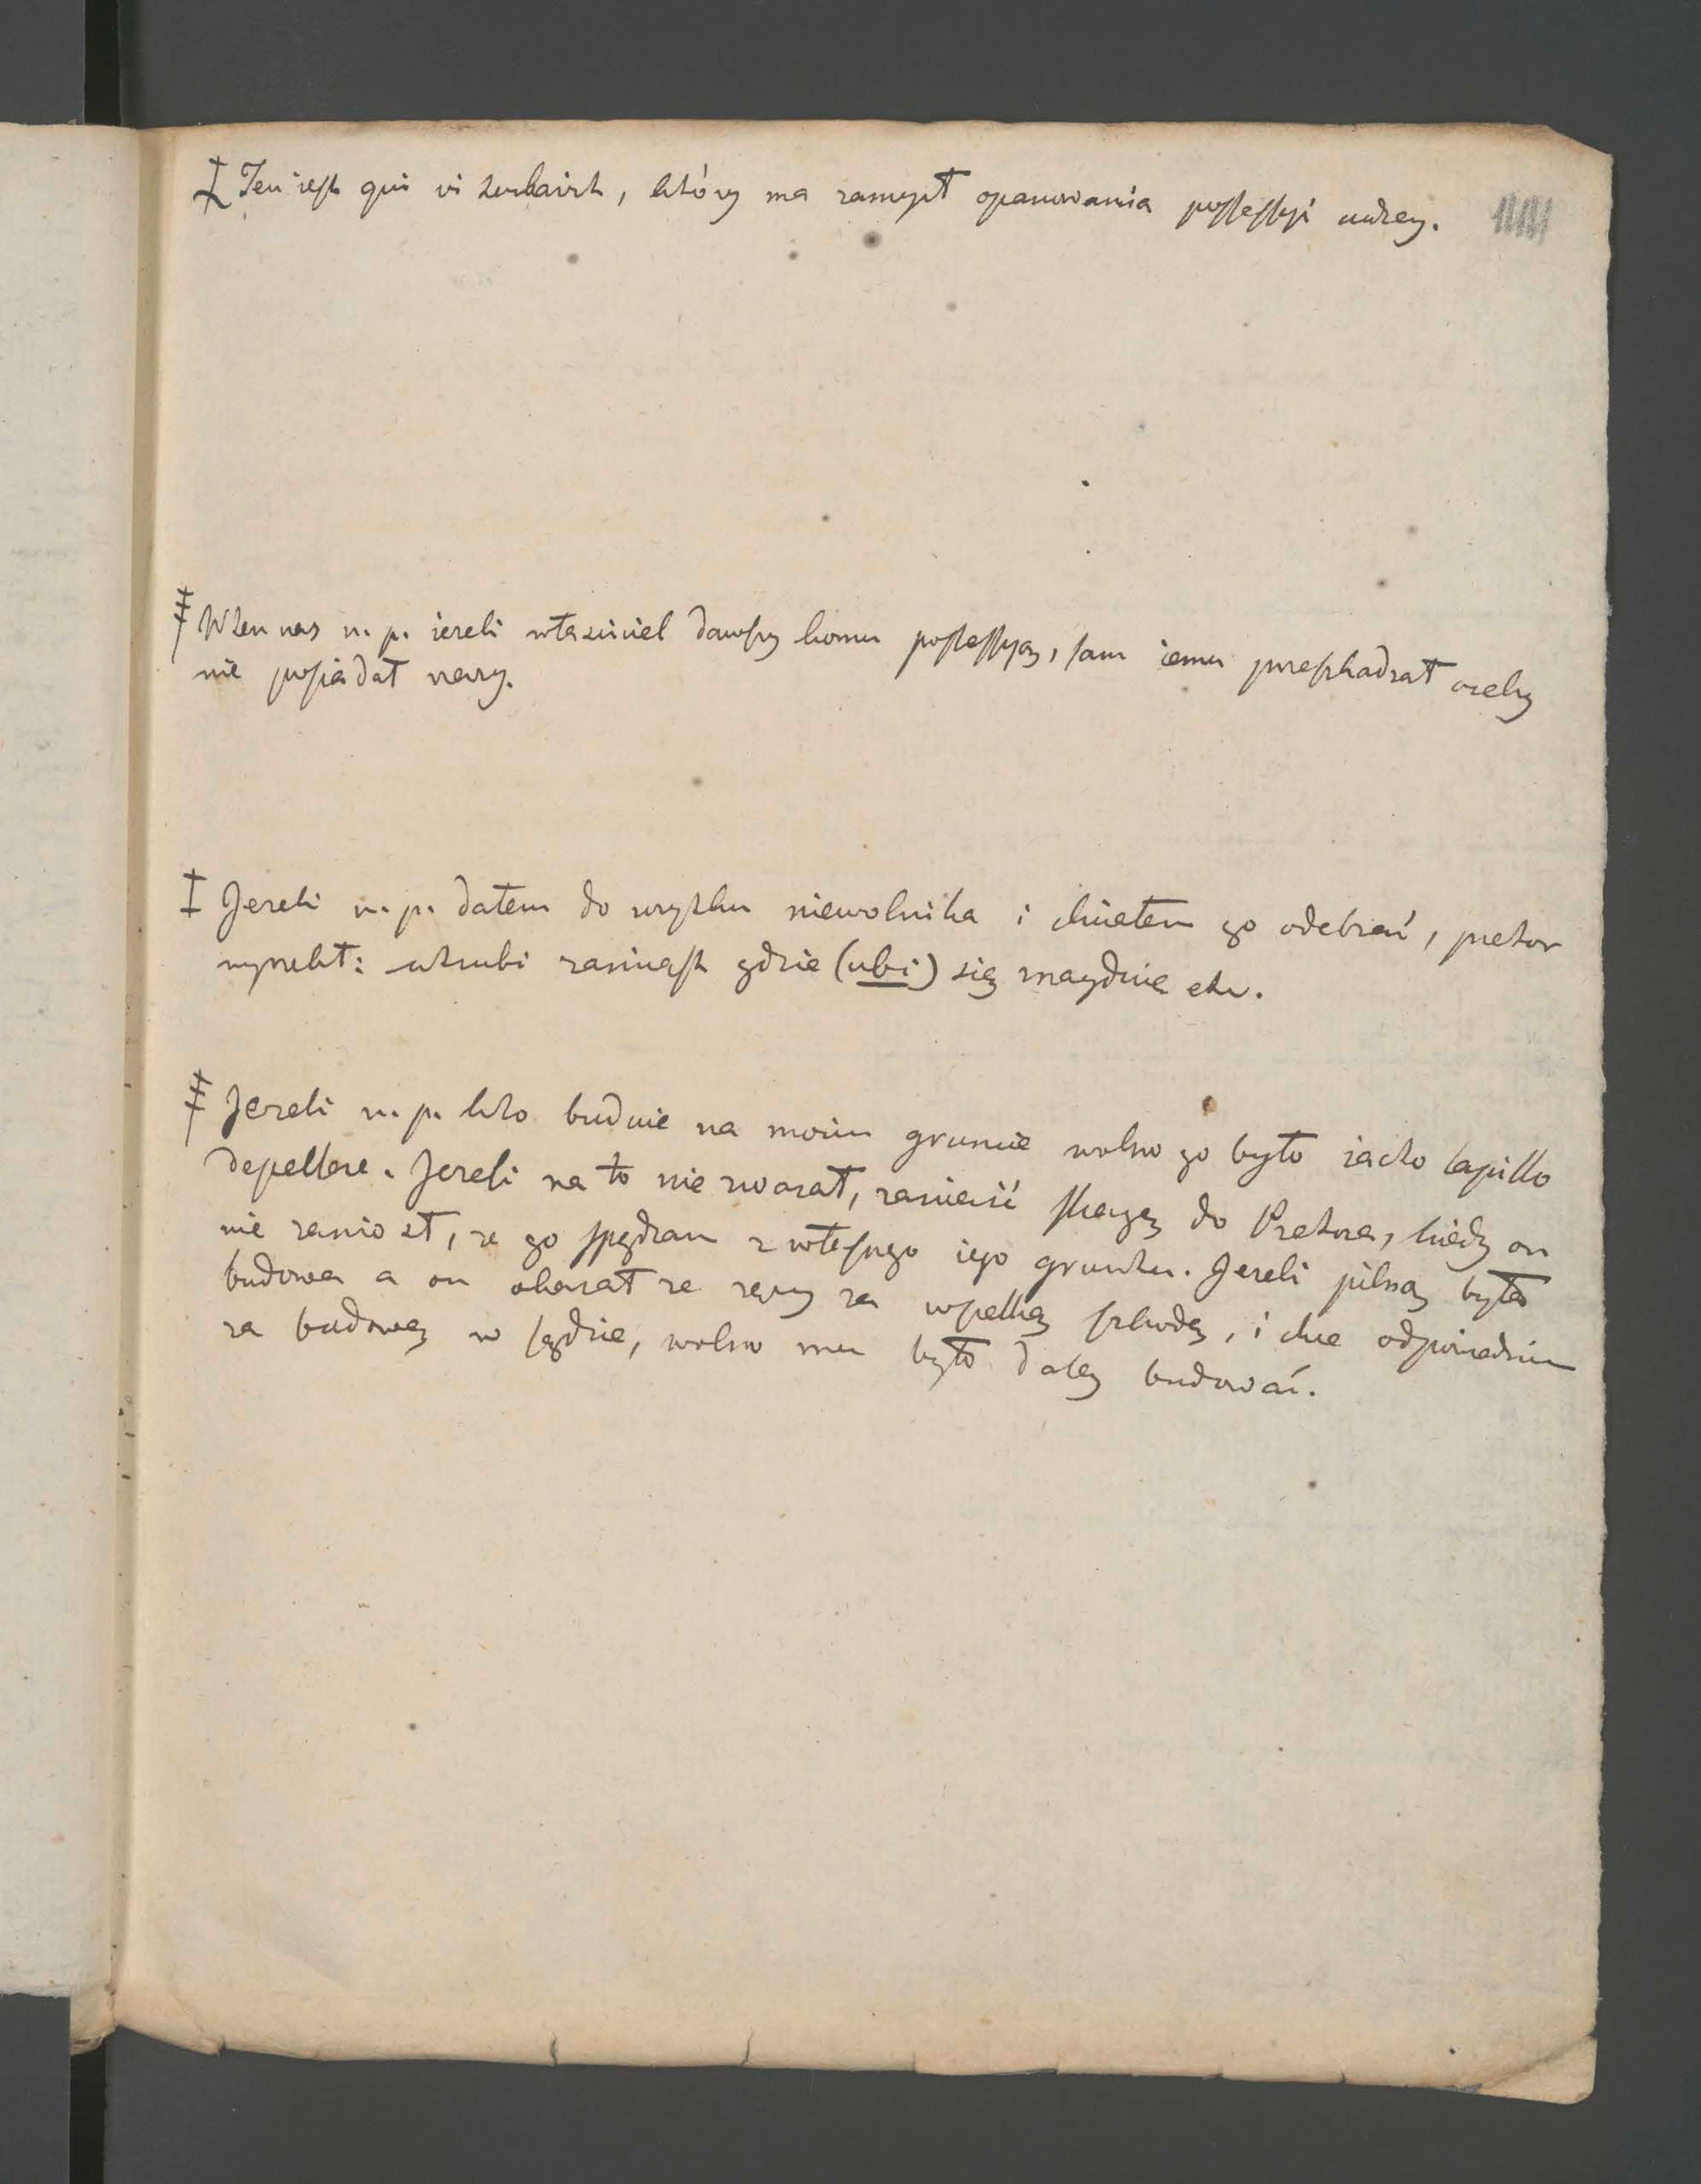 Ten iest qui vi turbavit, który ma zamysł opanowania possessyi cudzey.
W ten czas n. p. iezeli własciciel dawszy komu possessyą, sam iemu przeszkadzał azeby
nie posiadał rzeczy.
Jezeli n. p. dałem do uzytku niewolnika i chciałem go odebrać, pretor
wyrzekł: utrubi zamiast gdzie (ubi) się znaydzie etc.
Jezeli n. p. kto buduie na moim gruncie wolno go było iacto lapillo
depellere. Jezeli na to nie zwazał, zanieść skargę do Pretora, kiedy on
nie zaniosł, ze go spędzam z własnego iego gruntu. Jezeli pilną była
budowa a on okazał ze ręczy za wszelką szkodę, i chce odpowiedzieć
za budowę w sądzie, wolno mu było daley budować.